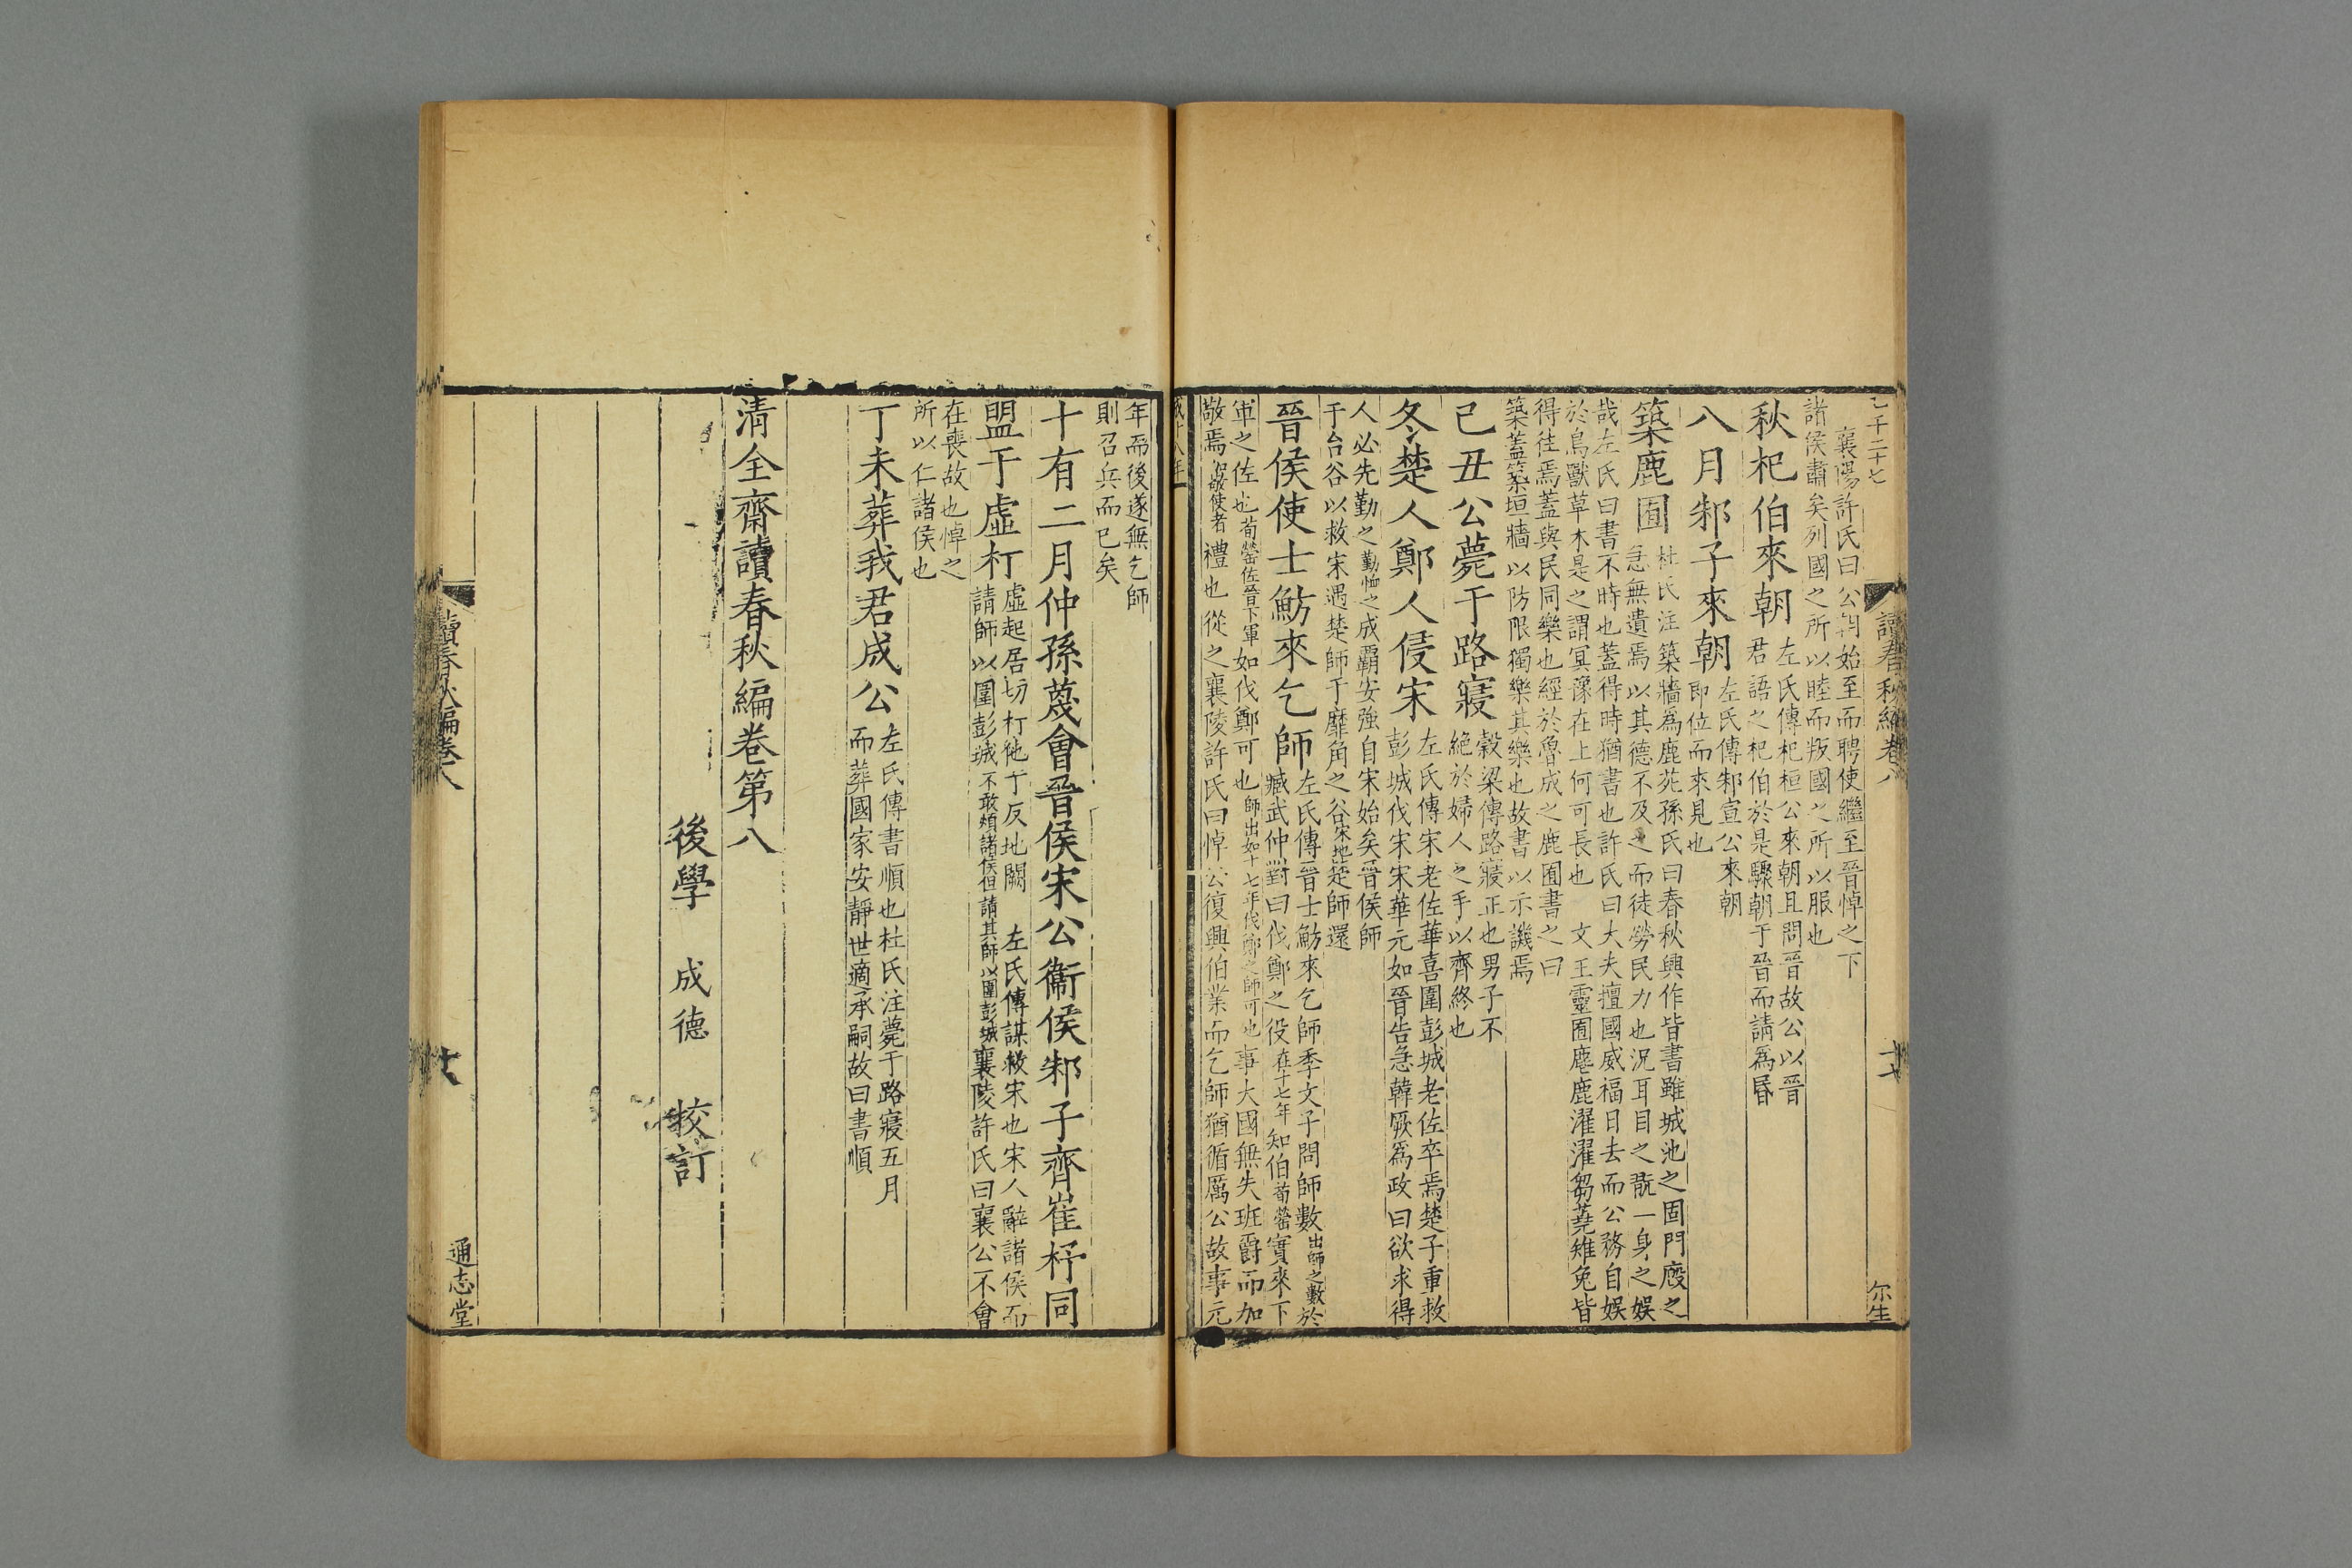 襄陽許氏曰公朝始至而聘使繼至晉悼之下
諸侯肅矣列國之所以睦而叛國之所以服也
秋杞伯來朝
左氏傳杞桓公來朝且問晉故公以晉
君語之杞伯於是驟朝于晉而請爲昬
八月邾子來朝
左氏傳邾宣公來朝
即位而來見也
築鹿囿
杜氏注築牆爲鹿苑孫氏曰春秋興作皆書雖城池之固門廄之
急無遺焉以其德不及之而徒勞民力也況耳目之翫一身之娱
哉左氏曰書不時也蓋得時猶書也許氏曰大夫擅國威福日去而公務自娱
於鳥獸草木是之謂冥豫在上何可長也 文王靈囿麀鹿濯濯芻蕘雉兔皆
得往焉蓋與民同樂也經於魯成之鹿囿書之曰
築蓋築垣牆以防限獨樂其樂也故書以示譏焉
己丑公薨于路寢
穀梁傳路寢正也男子不
絶於婦人之手以齊終也
冬楚人鄭人侵宋
左氏傳宋老佐華喜圍彭城老佐卒焉楚子重救
彭城伐宋宋華元如晉告急韓厥爲政曰欲求得
人必先勤之勤恤之成霸安強自宋始矣晉侯師
于台谷以救宋遇楚師于靡角之谷宋地楚師還
晉侯使士魴來乞師
左氏傳晉士魴來乞師季文子問師數出師之數於
臧武仲對曰伐鄭之役在十七年知伯荀罃實來下
軍之佐也荀罃佐晉下軍如伐鄭可也師出如十七年伐鄭之師可也事大國無失班爵而加
敬焉加敬使者禮也從之襄陵許氏曰悼公復興伯業而乞師猶循厲公故事元
成十八年
讀春秋編卷八
尔生
年而後遂無乞師
則召兵而已矣
十有二月仲孫蔑會晉侯宋公衞侯邾子齊崔杼同
盟于虛朾
虛起居切朾他丁反地闕 左氏傳謀救宋也宋人辭諸侯而
請師以圍彭城不敢煩諸侯但請其師以圍彭城襄陵許氏曰襄公不會
在喪故也悼之
所以仁諸侯也
丁未葬我君成公
左氏傳書順也杜氏注薨于路寢五月
而葬國家安靜世適承嗣故曰書順
清全齋讀春秋編卷第八
後學 成德 挍訂
讀春秋編卷八
通志堂